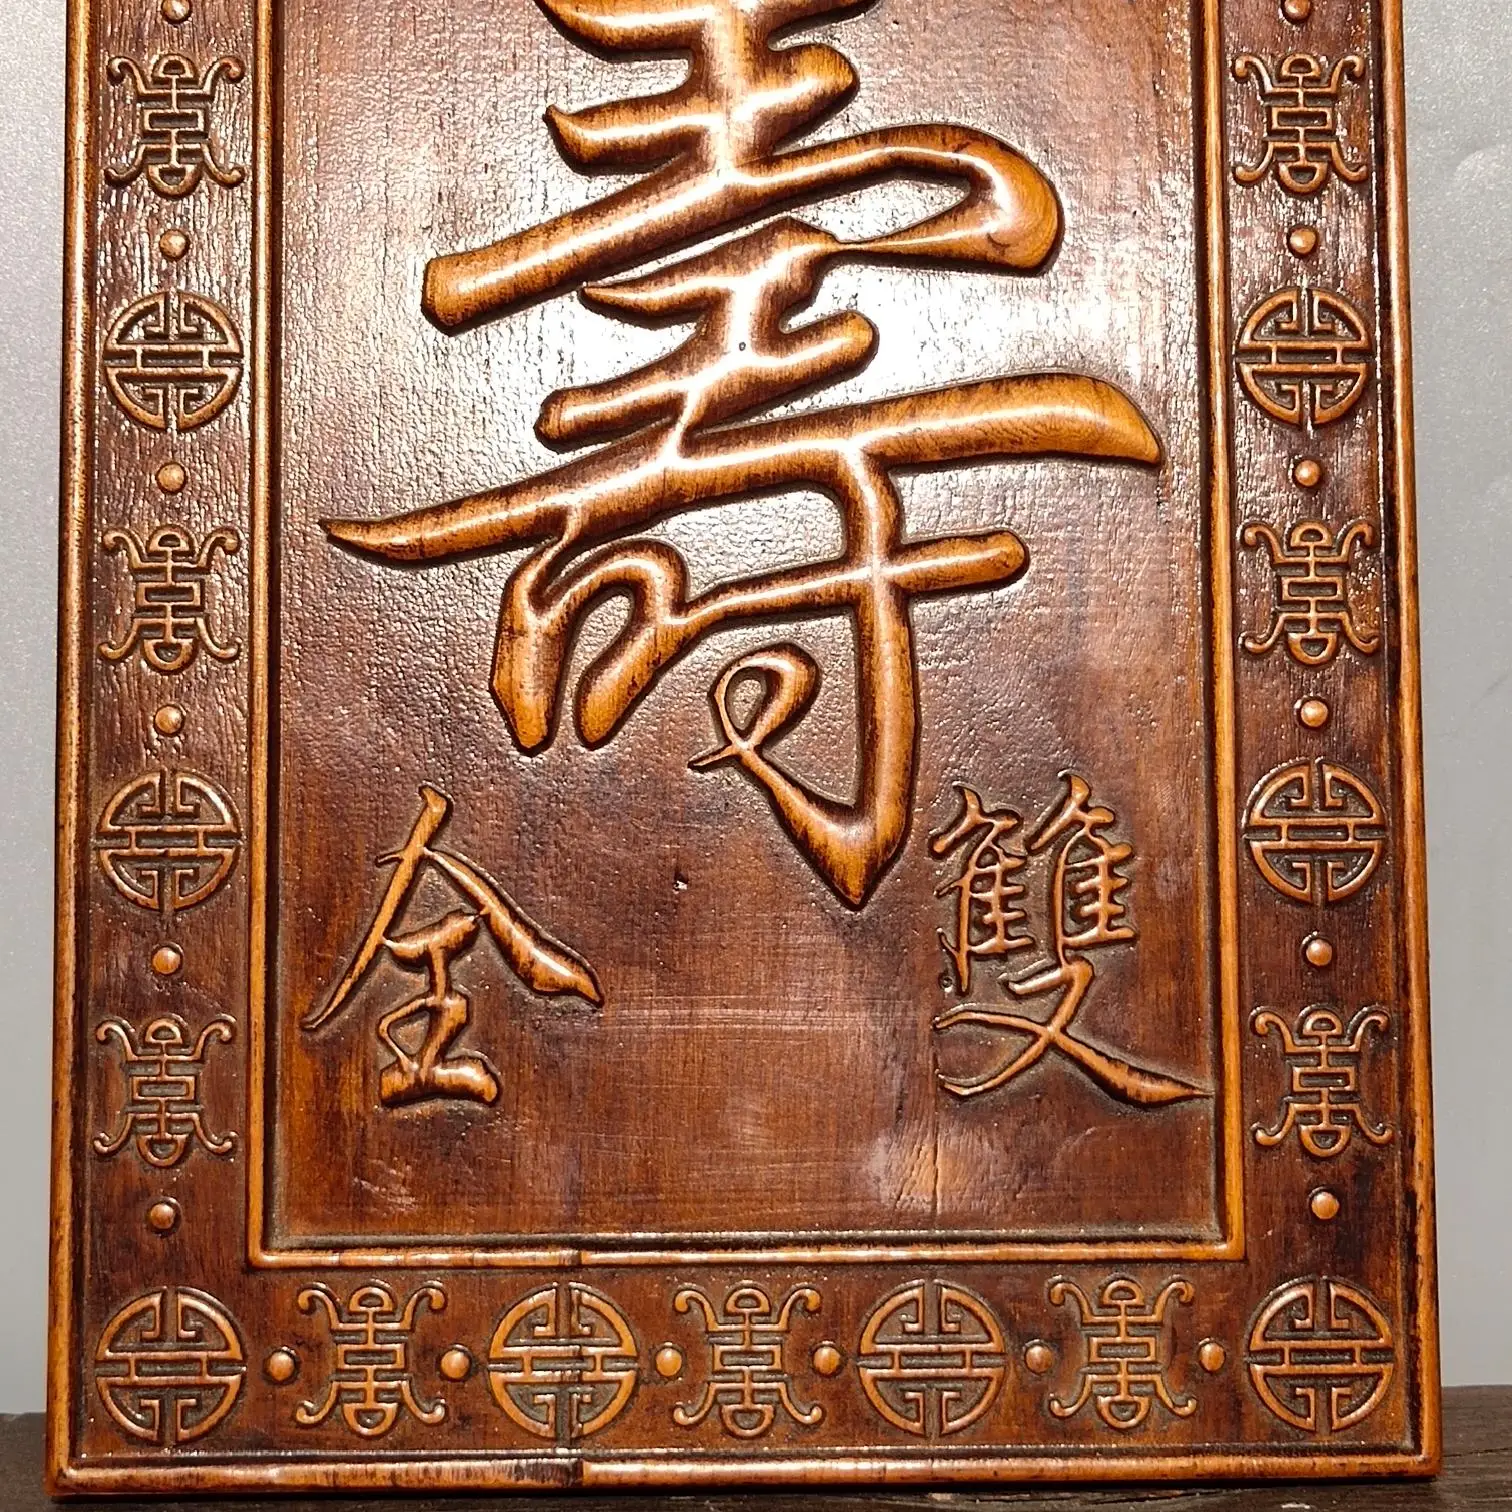 壽
雙全